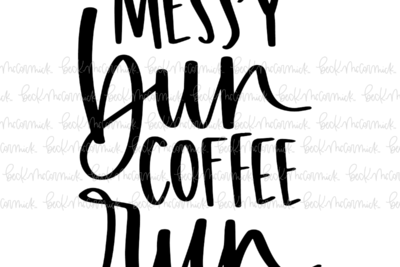 MESSY
bun
COFFEE
run